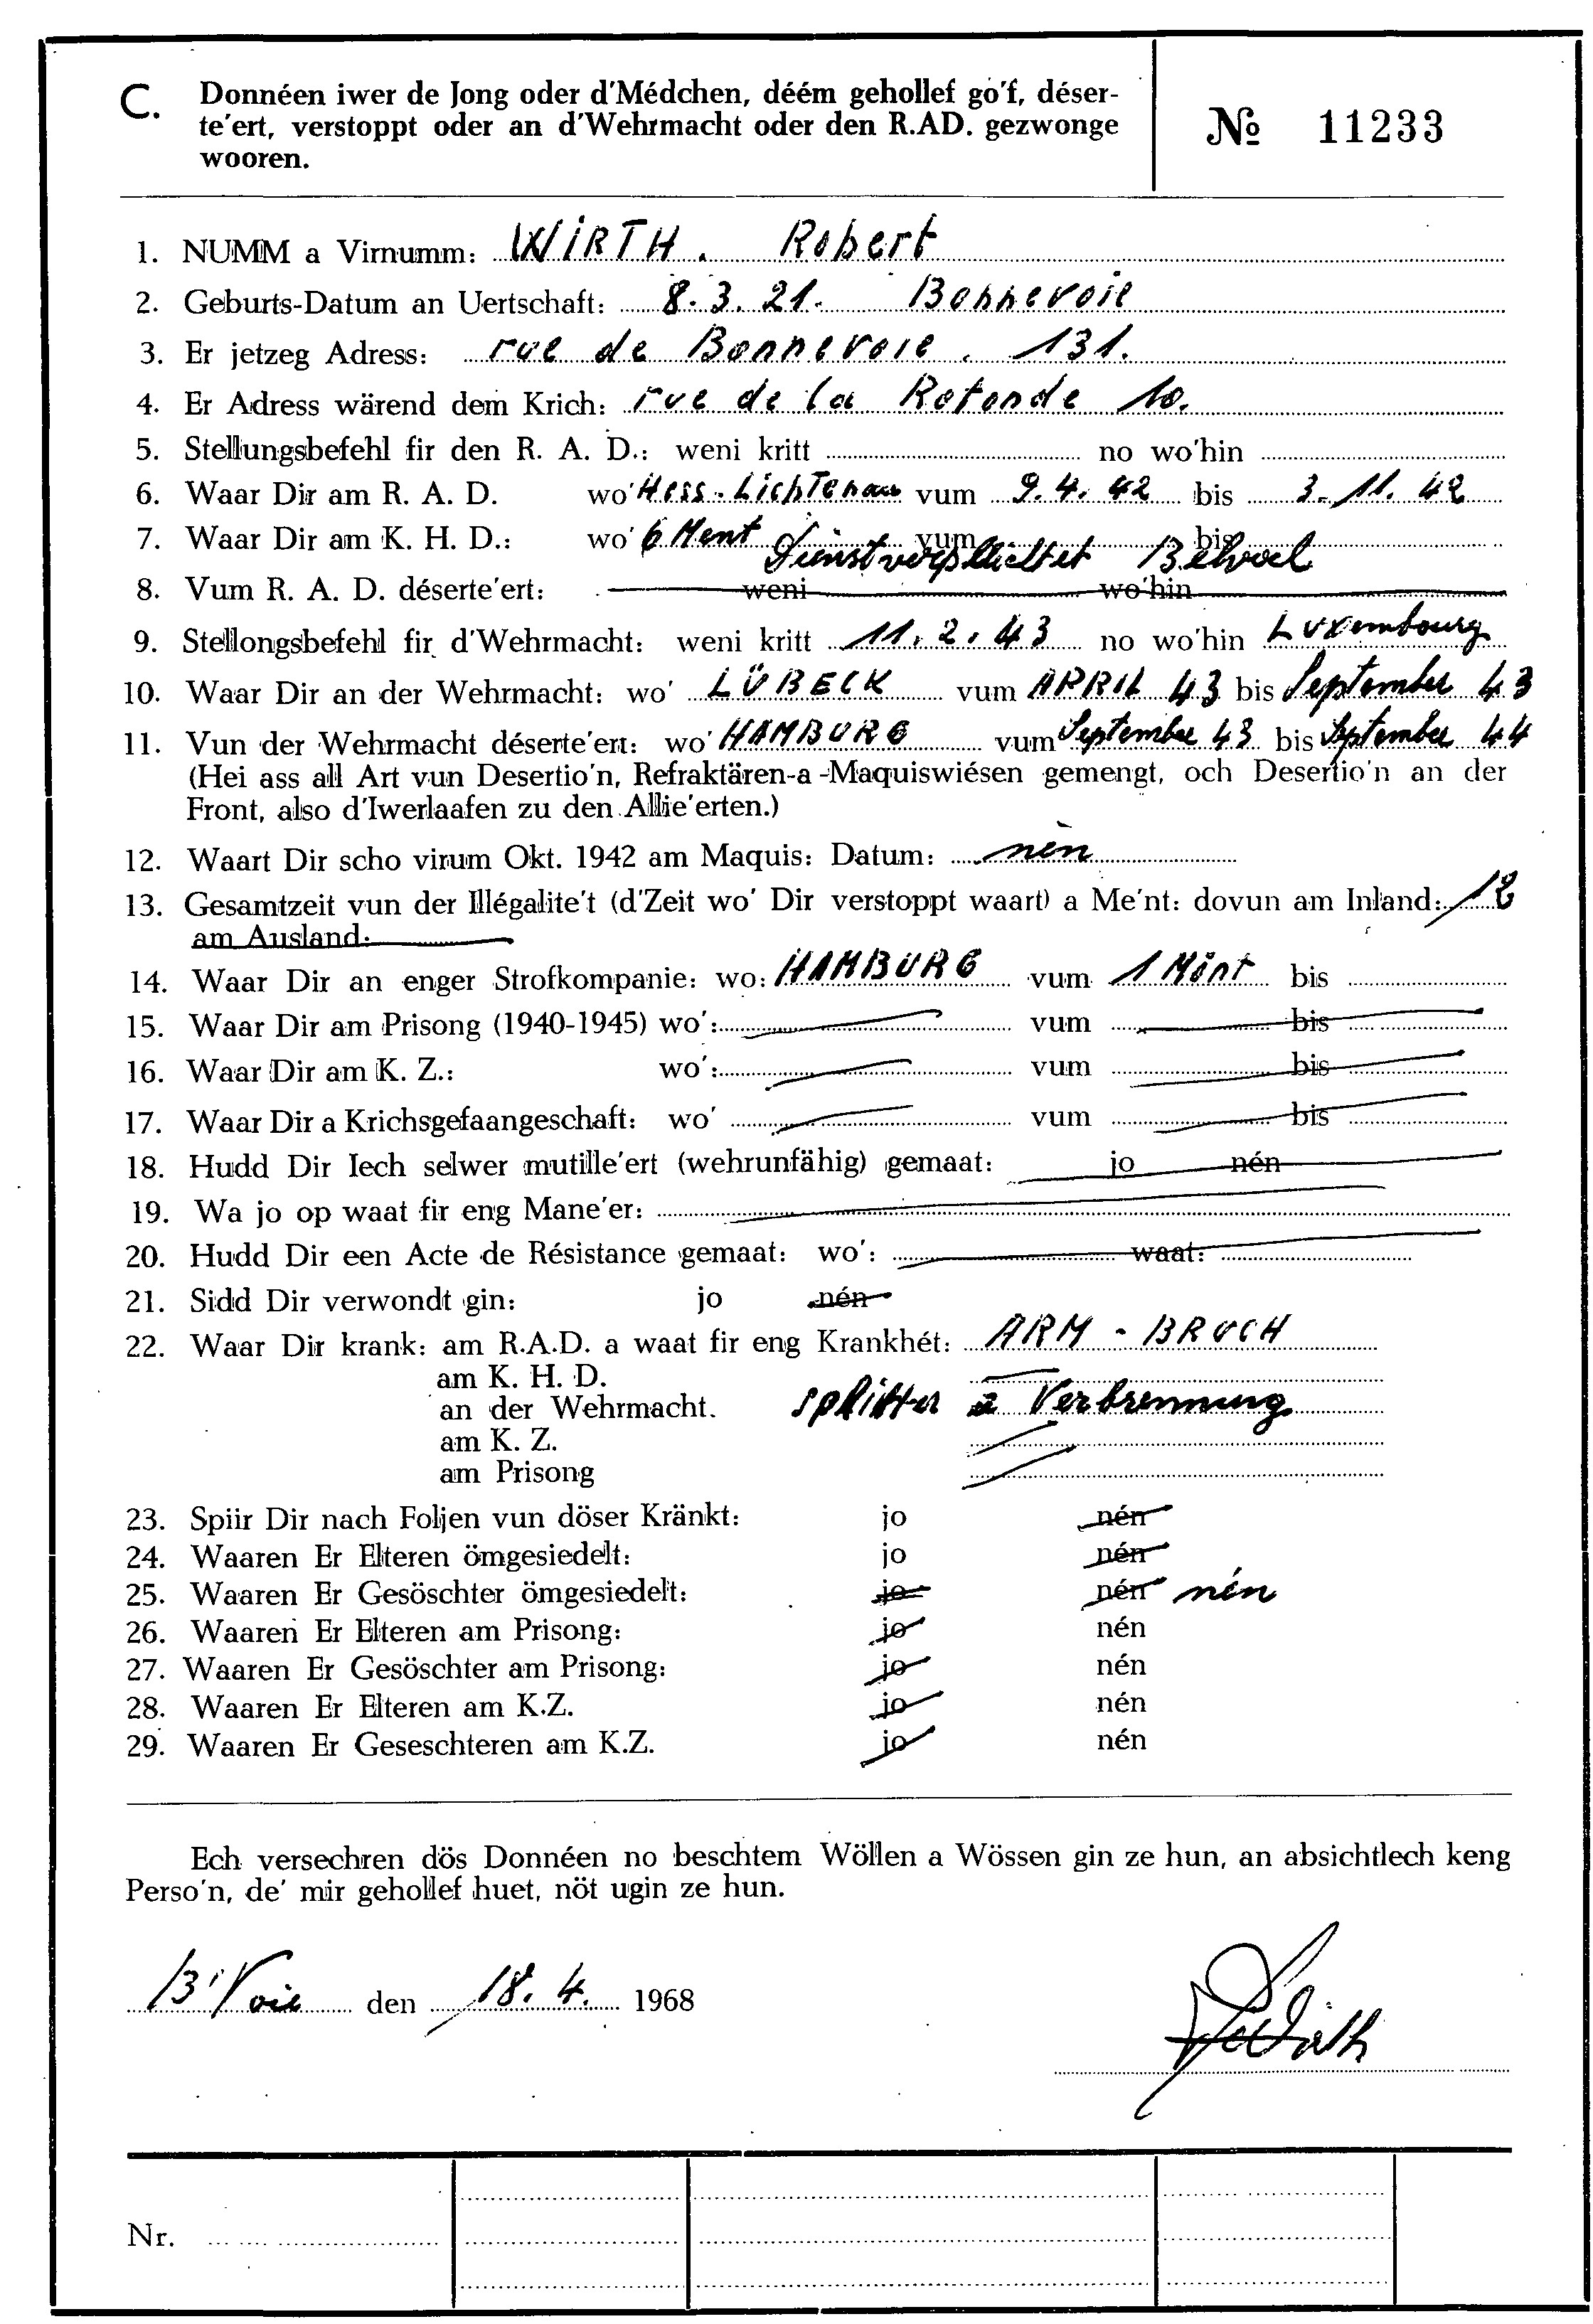 C. Donnéen iwer de Jong oder d'Médchen, déém gehollef go'f, déser-
te'ert, verstoppt oder an d'Wehrmacht oder den R.AD. gezwonge
wooren.
№ 11233
1. NUMM a Virnumm: WIRTH. Robert
2. Geburts-Datum an Uertschaft: 8.3.21. Bonnevoie
3. Er jetzeg Adress: rue de Bonnevoie. 131.
4. Er Adress wärend dem Krich: rue de la Rotonde 10.
5. Stellungsbefehl fir den R. A. D.: weni kritt no wo'hin
6. Waar Dir am R. A. D. wo' Hess. Lichtenau vum 9.4.42 bis 3.11.42
7. Waar Dir am K. H. D.: wo' 6 Ment Dienstverpflichtet vum bis
8. Vum R. A. D. déserte'ert: weni wo'hin
9. Stellongsbefehl fir d'Wehrmacht: weni kritt 11.2.43 no wo'hin Luxembourg
10. Waar Dir an der Wehrmacht: wo' LÜBECK vum APRIL 43 bis September 43
11. Vun der Wehrmacht déserte'ert: wo' HAMBURG vum September 43 bis September 44
(Hei ass all Art vun Desertio'n, Refraktären-a-Maquiswiésen gemengt, och Desertio'n an der
Front, also d'Iwerlaafen zu den Allie'erten.)
12. Waart Dir scho virum Okt. 1942 am Maquis: Datum: nèn
13. Gesamtzeit vun der Illégalite't (d'Zeit wo' Dir verstoppt waart) a Me'nt: dovun am Inland: 12
am Ausland:
14. Waar Dir an enger Strofkompanie: wo: HAMBURG vum 1 Mönt bis
15. Waar Dir am Prisong (1940-1945) wo': vum bis
16. Waar Dir am K. Z.: wo': vum bis
17. Waar Dir a Krichsgefaangeschaft: wo' vum bis
18. Hudd Dir Iech selwer mutille'ert (wehrunfähig) gemaat: jo nén
19. Wa jo op waat fir eng Mane'er:
20. Hudd Dir een Acte de Résistance gemaat: wo': waat:
21. Sidd Dir verwondt gin: jo nén
22. Waar Dir krank: am R.A.D. a waat fir eng Krankhét: ARM - BRUCH
am K. H. D.
an der Wehrmacht. splitter a Verbrennung
am K. Z.
am Prisong
23. Spiir Dir nach Foljen vun döser Kränkt: jo nén
24. Waaren Er Elteren ömgesiedelt: jo nén
25. Waaren Er Gesöschter ömgesiedelt: jo nén nén
26. Waaren Er Elteren am Prisong: jo nén
27. Waaren Er Gesöschter am Prisong: jo nén
28. Waaren Er Elteren am K.Z. jo nén
29. Waaren Er Geseschteren am K.Z. jo nén
Ech versechren dös Donnéen no beschtem Wöllen a Wössen gin ze hun, an absichtlech keng
Perso'n, de' mir gehollef huet, nöt ugin ze hun.
B'Voie den 18.4. 1968
Nr.